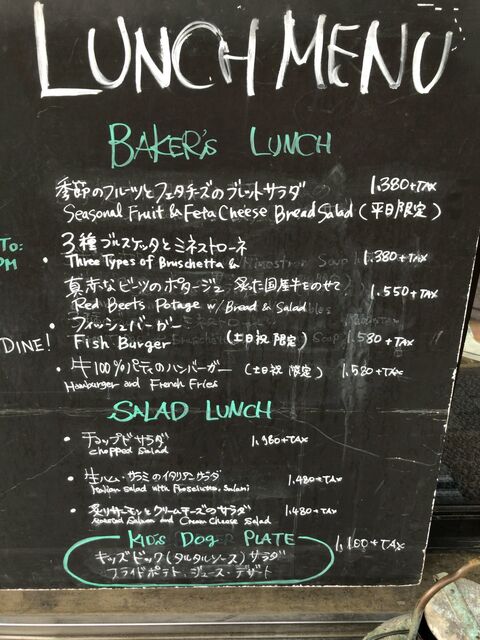 LUNCH MENU
BAKER's LUNCH
季節のフルーツとフェタチーズのブレットサラダ 1,380+TAX
Seasonal Fruit & Feta Cheese Bread Salad (平日限定)
TO:
PM
• 3種ブルスケッタとミネストローネ 1,380+TAX
Three Types of Bruschetta &
真赤なビーツのポタージュ 国産牛をのせて 1,550+TAX
Red Beets Potage w/ Bread & Salad
• フィッシュバーガー
DINE! Fish Burger (土日祝限定) 1,580+TAX
• 牛100%パティのハンバーガー (土日祝限定) 1,580+TAX
Hamburger and French Fries
SALAD LUNCH
• チョップドサラダ 1,980+TAX
chopped Salad
• 生ハム・サラミのイタリアンサラダ 1,480+TAX
Italian salad with Prosciutto, Salami
• 炙りサーモンとクリームチーズのサラダ 1,480+TAX
Roasted Salmon and Cream Cheese Salad
KID's DOG PLATE 1,180+TAX
キッズドック(タルタルソース)サラダ
フライドポテト、ジュース・デザート